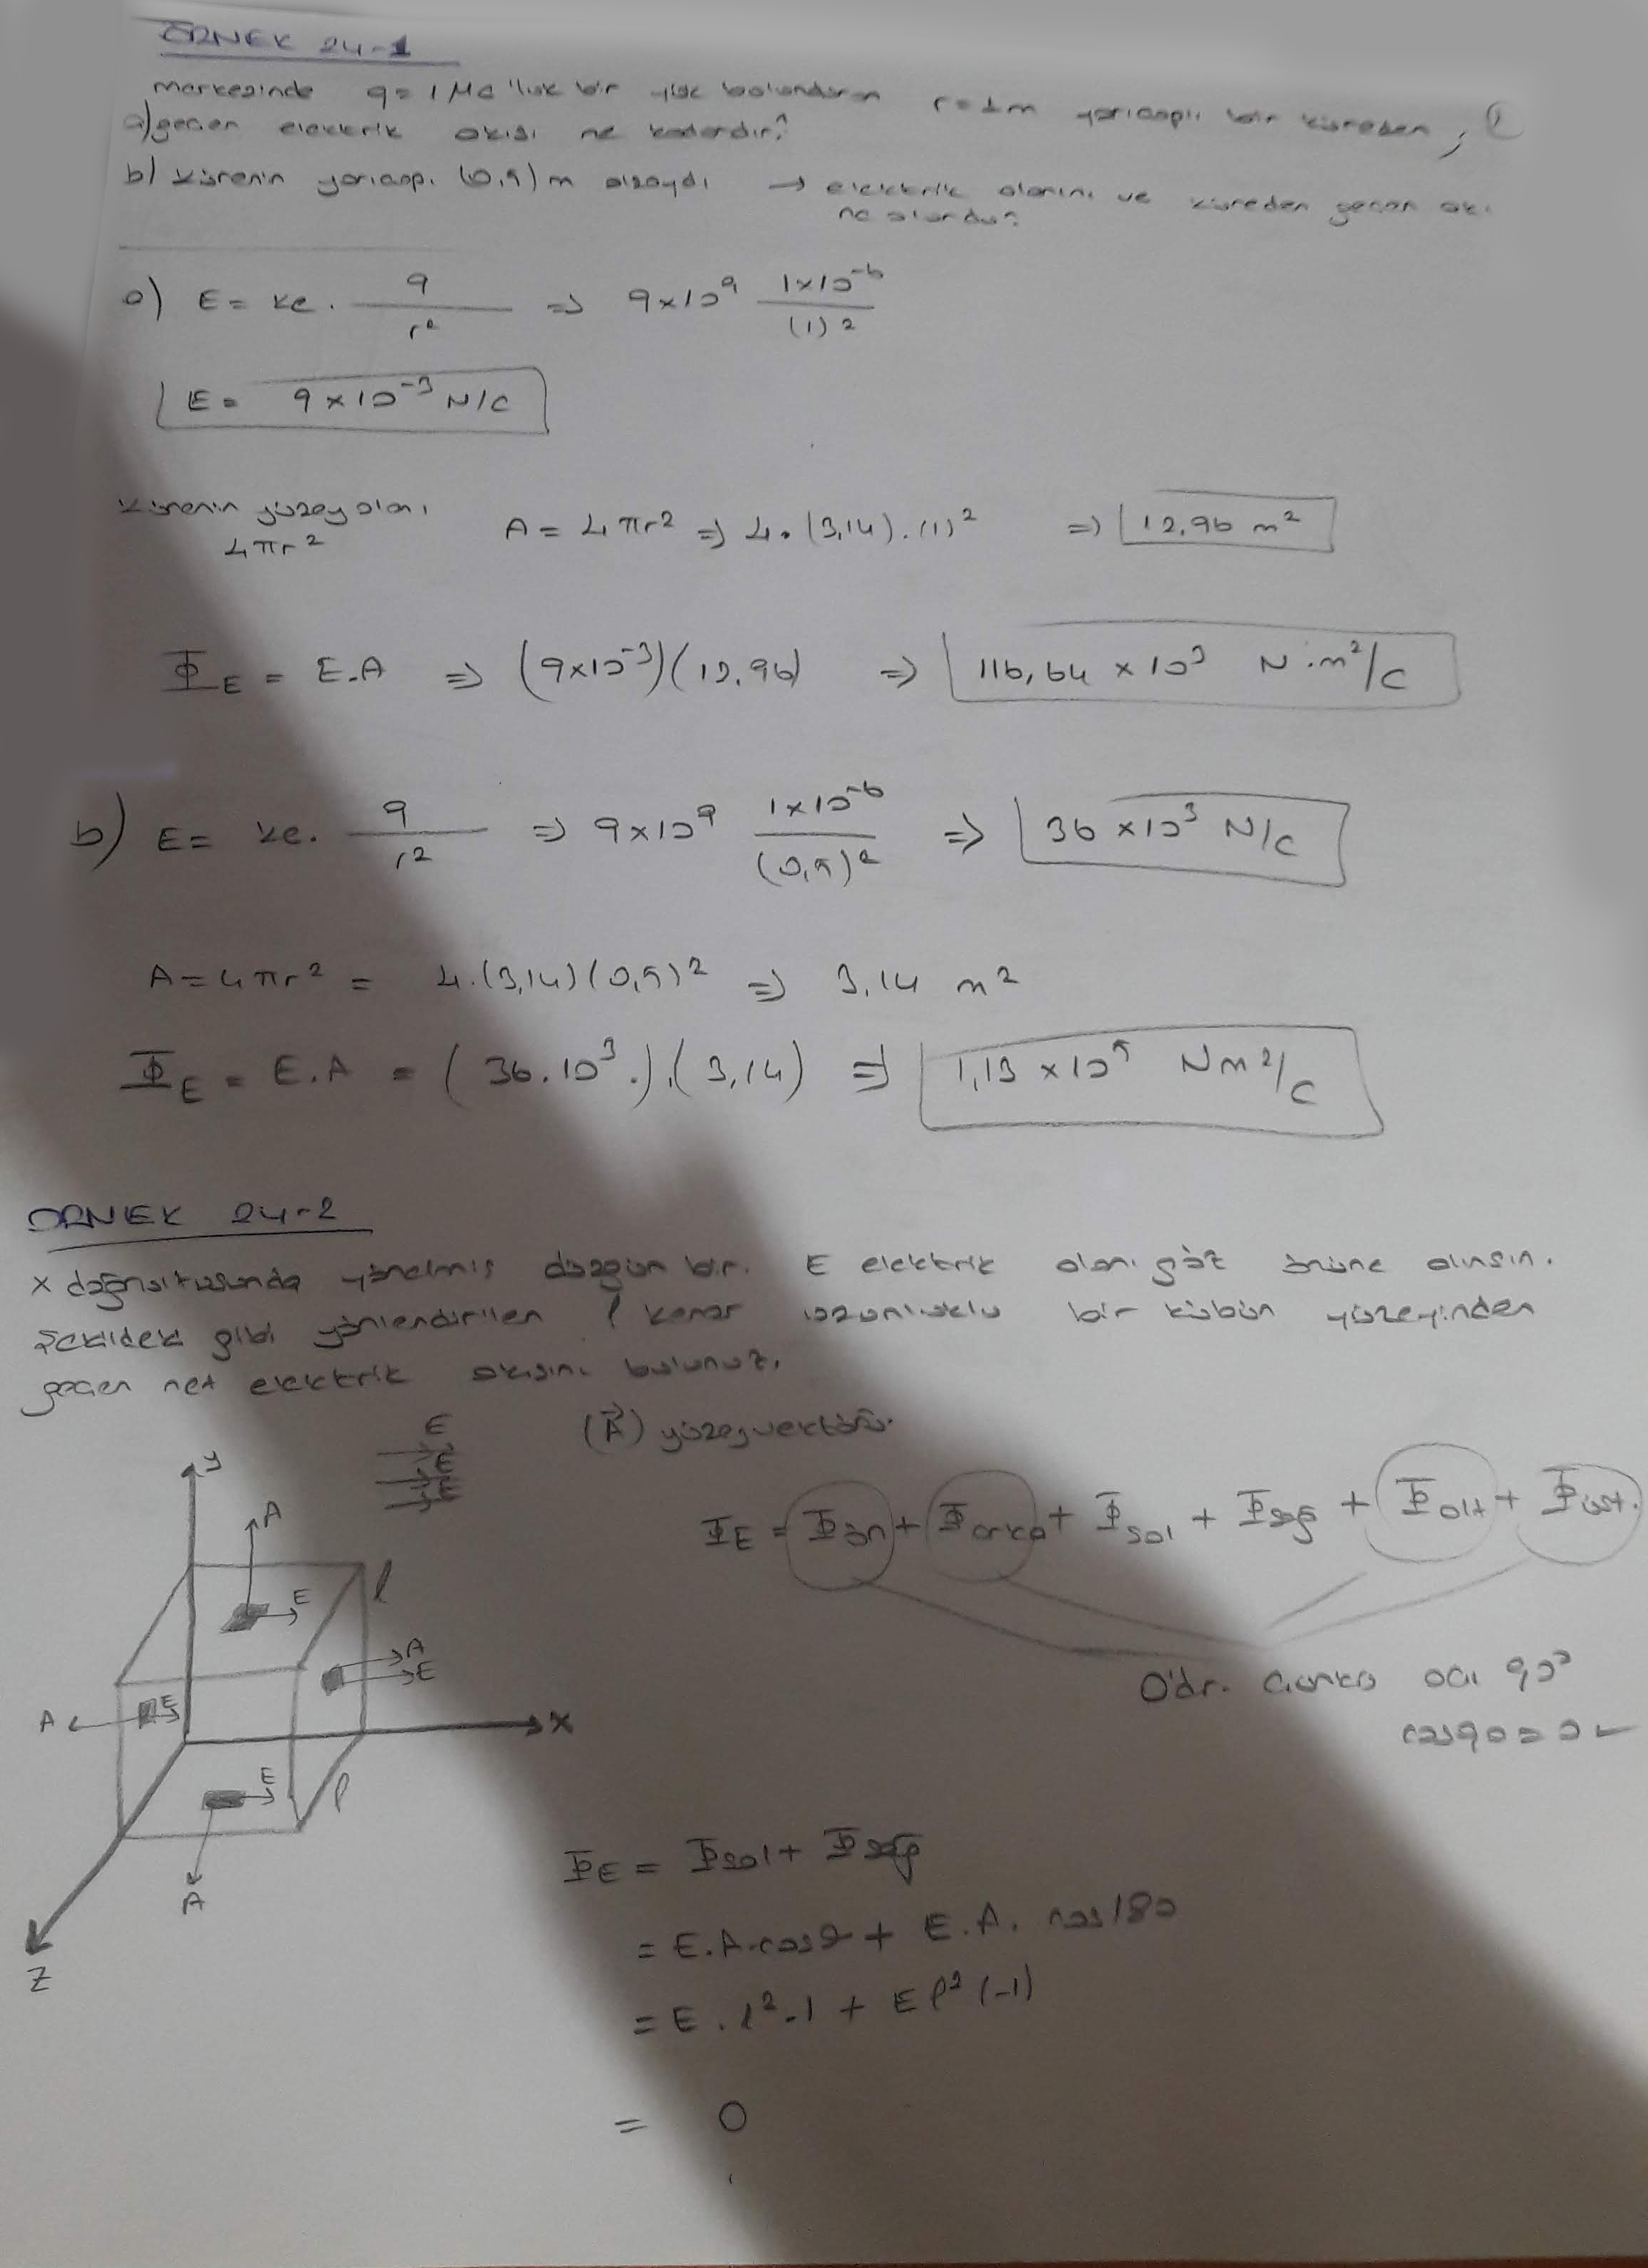 ÖRNEK 24-1
merkezinde q = 1 Mc 'luk bir yük bulunduran r=1m yarıçaplı bir küreden,
a) geçen elektrik akısı ne kadardır?
b) Kürenin yarıçapı (0,5)m olsaydı → elektrik alanını ve küreden geçen akı
ne olurdu?
a) E = ke. q/r² => 9x10⁹ 1x10⁻⁶/(1)²
E = 9x10⁻³ N/C
Kürenin yüzey alanı
4πr²
A = 4πr² => 4.(3,14).(1)² => 12,96 m²
Φ_E = E.A => (9x10⁻³)(12,96) => 116,64 x 10³ N.m²/C
b) E = ke. q/r² => 9x10⁹ 1x10⁻⁶/(0,5)² => 36 x10³ N/C
A=4πr² = 4.(3,14)(0,5)² => 3,14 m²
Φ_E = E.A = (36.10³.).(3,14) => 1,13 x10⁵ Nm²/C
ORNEK 24-2
x doğrultusunda yönelmiş düzgün bir. E elektrik alanı göz önüne alınsın.
Şekildeki gibi yönlendirilen l kenar uzunluklu bir kübün yüzeyinden
geçen net elektrik akısını bulunuz.
E
E
E
(A⃗) yüzey vektörü.
y
A
E
l
Φ_E = Φön + Φarka + Φsol + Φsağ + Φalt + Φüst.
A
E
A E
x
0'dr. Çünkü açı 90°
cos90=0
E
l
A
z
Φ_E = Φsol + Φsağ
= E.A.cos0 + E.A. cos180
= E.l².1 + El²(-1)
= 0